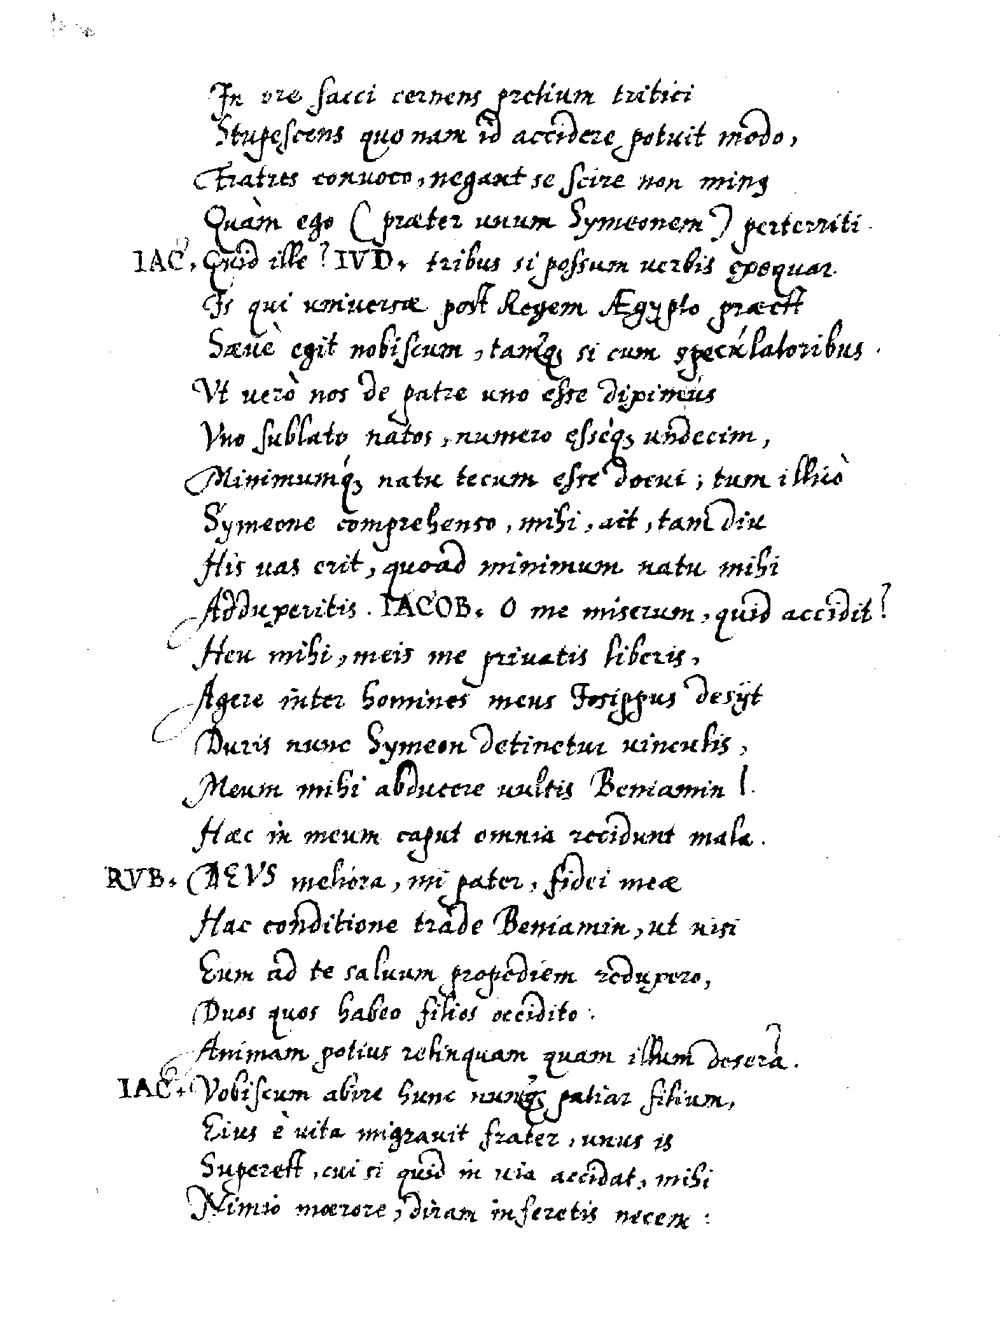 In ore sacci cernens pretium tritici
Stupescens quo nam id accidere potuit modo,
Fratres convoco, negant se scire non minꝯ
Quàm ego (præter unum Symeonem) perterriti.
IAC. Quid ille? IVD. tribus si possum verbis exequar.
Is qui universæ post Regem Ægypto præest
Sævè egit nobiscum, tamꝗ si cum speculatoribus.
Vt verò nos de patre uno esse diximus
Vno sublato natos, numero esseq; undecim,
Minimumq; natu tecum esse docui; tum illicò
Symeone comprehenso, mihi, ait, tam diu
His vas erit, quoad minimum natu mihi
Adduxeritis. IACOB. O me miserum, quid accidit?
Heu mihi, meis me privatis liberis,
Agere inter homines meus Iosippus desijt
Duris nunc Symeon detinetur vinculis,
Meum mihi abducere vultis Beniamin!
Hæc in meum caput omnia recidunt mala.
RVB. DEVS meliora, mi pater, fidei meæ
Hac conditione trade Beniamin, ut nisi
Eum ad te salvum propediem reduxero,
Duos quos habeo filios occidito.
Animam potius relinquam quam illum deserā.
IAC. Vobiscum abire hunc nunꝗ patiar filium,
Eius è vita migravit frater, unus is
Superest, cui si quid in via accidat, mihi
Nimio mœrore, diram inferetis necem: